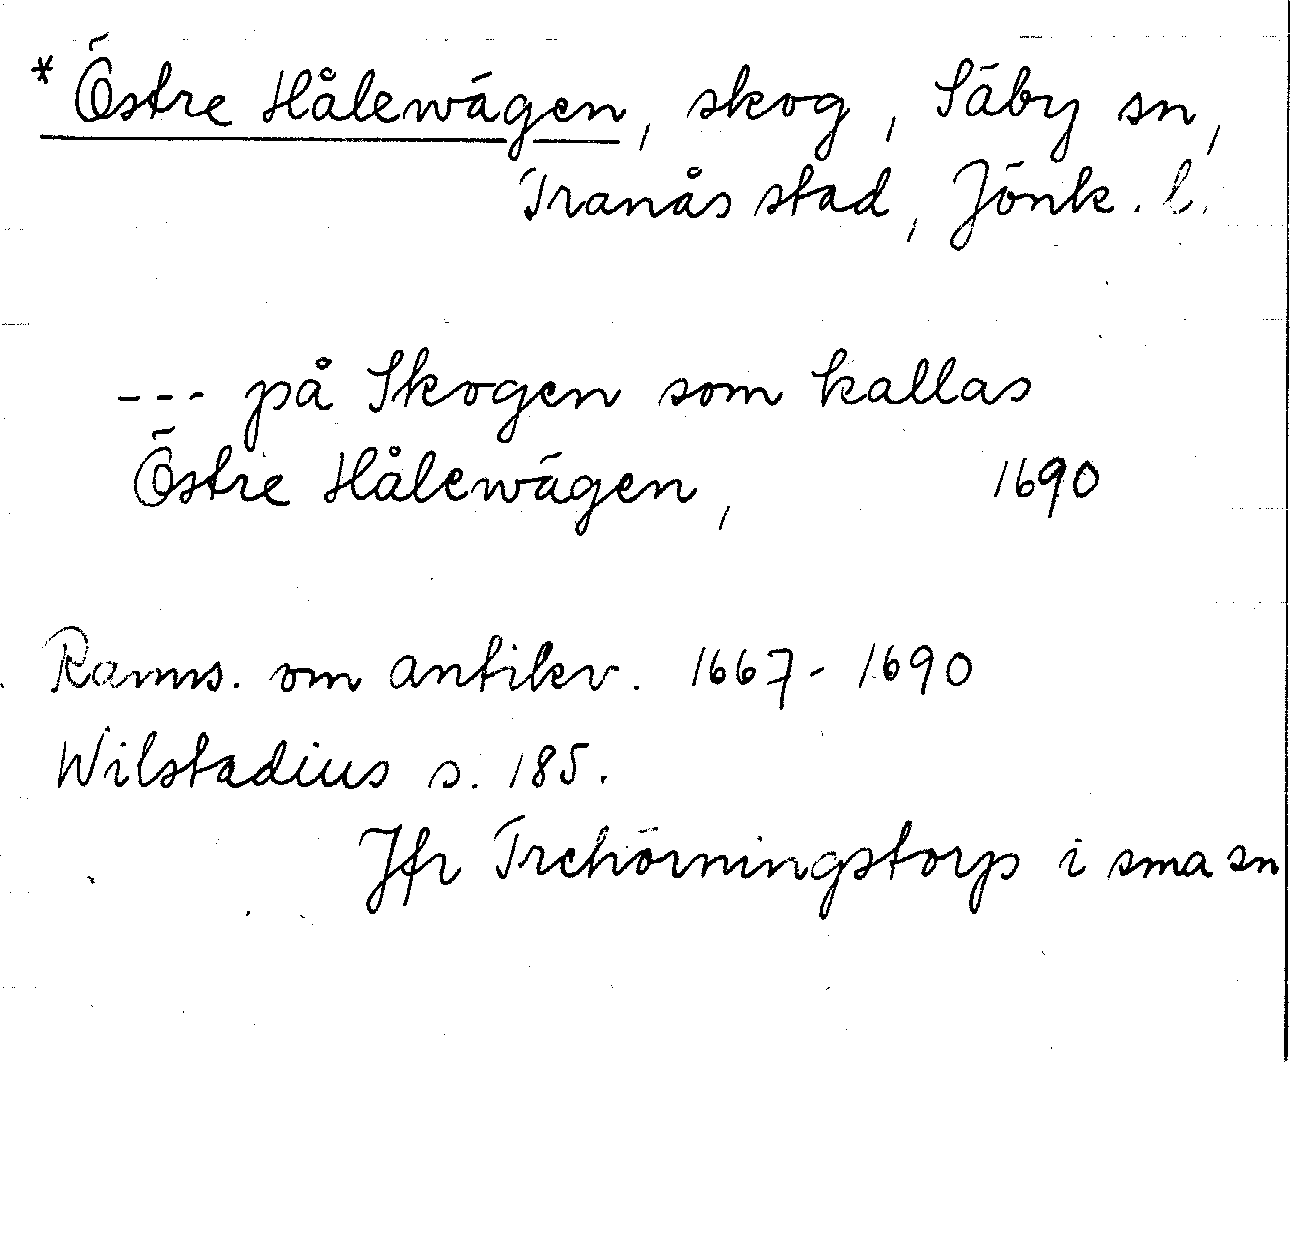 * Östre Hålewägen, skog, Säby sn,
Tranås stad, Jönk. l.
--- på Skogen som kallas
Östre Hålewägen, 1690
Ranns. om antikv. 1667-1690
Wilstadius s. 185.
Jfr Trehörningstorp i sma sn